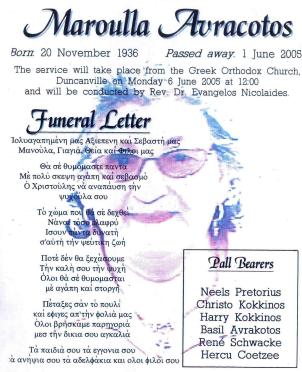 Maroulla Avracotos
Born: 20 November 1936 Passed away: 1 June 2005
The service will take place from the Greek Orthodox Church,
Duncanville on Monday 6 June 2005 at 12:00
and will be conducted by Rev. Dr. Evangelos Nicolaides.
Funeral Letter
Πολυαγαπημένη μας Αξιεπενη και Σεβαστή μας
Μανούλα, Γιαγιά, Θεία και Φίλοι μας
Θά σέ θυμόμαστε παντα
Μέ πολύ σκεψη αγάπη και σεβασμό
Ο Χριστούλης νά αναπαύση τήν
ψυχούλα σου
Τό χώμα που θά σέ δεχθεί
Νάναι τόσο ελαφρύ
Ισουν πάντα δυνατή
σ'αυτή τήν ψεύτικη ζωή
Ποτέ δέν θα ξεχάσουμε
Τήν καλή σου τήν ψυχή
Ολοι θά σέ θυμόμασται
μέ αγάπη καί στοργή
Πέταξες σάν τό πουλί
καί εφιγες απ'τήν φολιά μας
Ολοι βρήσκαμε παρηχοριά
μεσ τήν δικια σου αγκαλιά
Τά παιδιά σου τά εγγονια σου
ά ανήψια σου τά αδελφάκια καί ολοι φιλοι σου
Pall Bearers
Neels Pretorius
Christo Kokkinos
Harry Kokkinos
Basil Avrakotos
René Schwacke
Hercu Coetzee